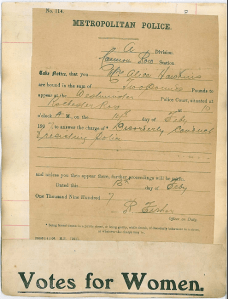 No. 314.
METROPOLITAN POLICE.
A Division.
Cannon Row Station.
Take Notice, that you Mrs Alice Hawkins
are bound in the sum of Two Pounds to
appear at the Westminster Police Court, situated at
Rochester Row at 10
o'clock A. M., on the 14th day of Feby
190 to answer the charge of Disorderly Conduct
Police
and unless you appear there, further proceedings will be
Dated this 13th day of Feby
One Thousand Nine Hundred 7
Votes for Women.